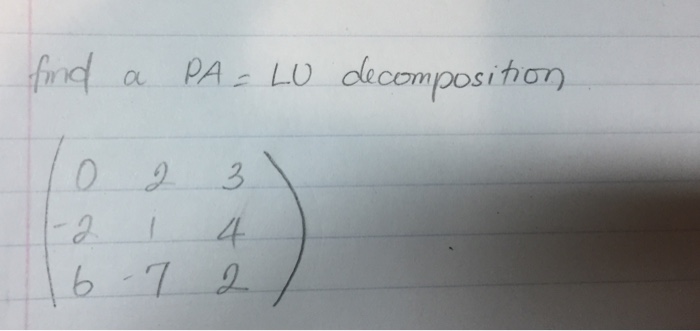 find a PA = LU decomposition
0 2 3
-2 1 4
6 -7 2